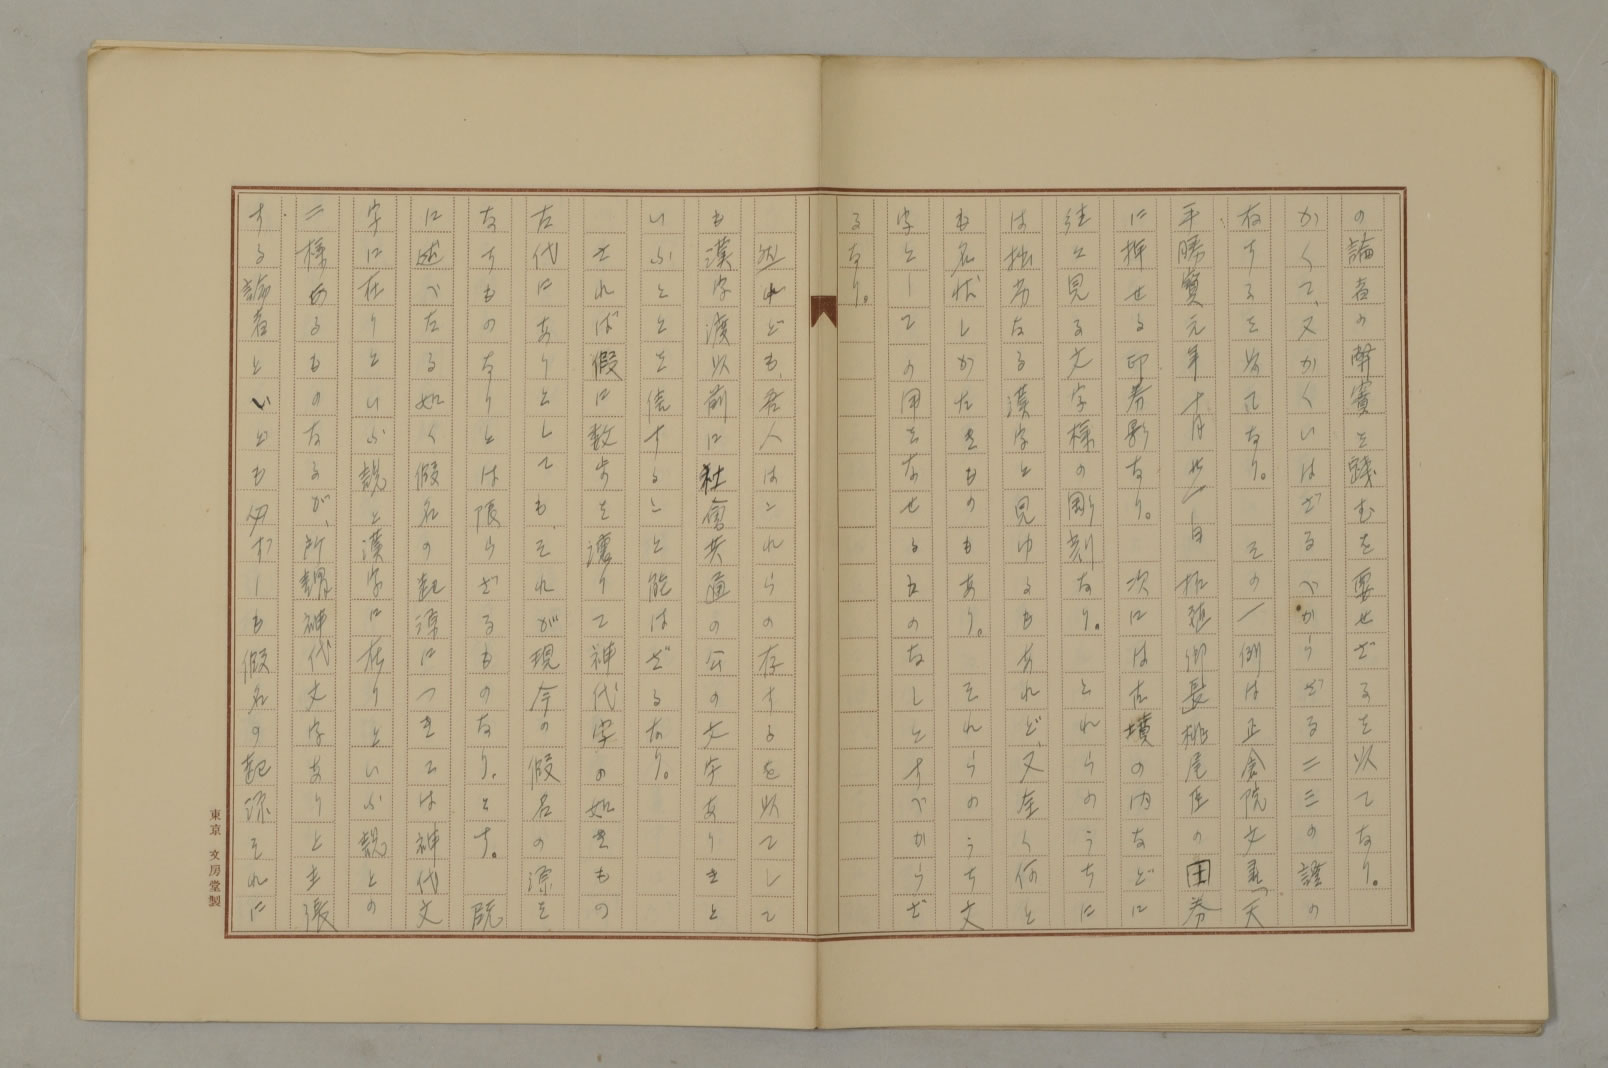 の論者の故實を踐むを要せざるを以てなり。
かくて、又かくいはざるべからざる二三の證の
存するを以てなり。その一例は正倉院文書「天
平勝寳元年十一月廿一日柘殖郷長桃尾臣の田券
に押せる印券影なり。次には古墳の内などに
往々見る文字様の彫刻なり。これらのうちに
は拙劣なる漢字と見ゆるもあれど、又全く何と
も名状しがたきものもあり。それらのうち文
字としての用をなせるものなしとすべからざ
るなり。
然れども、吾人はこれらの存するを以てして
も漢字渡以前に社會共通の公の文字ありきと
いふことを信ずること能はざるなり。
されば假に数歩を讓りて神代字の如きもの
古代にありとしても、それが現今の假名の源を
なすものなりとは限らざるものなり。とす。既
に述べたる如く假名の起源につきては神代文
字に在りといふ説と漢字に在りといふ説との
二様あるものなるが、所謂神代文字ありと主張
する論者といども必ずしも假名の起源それに
東京 文房堂製